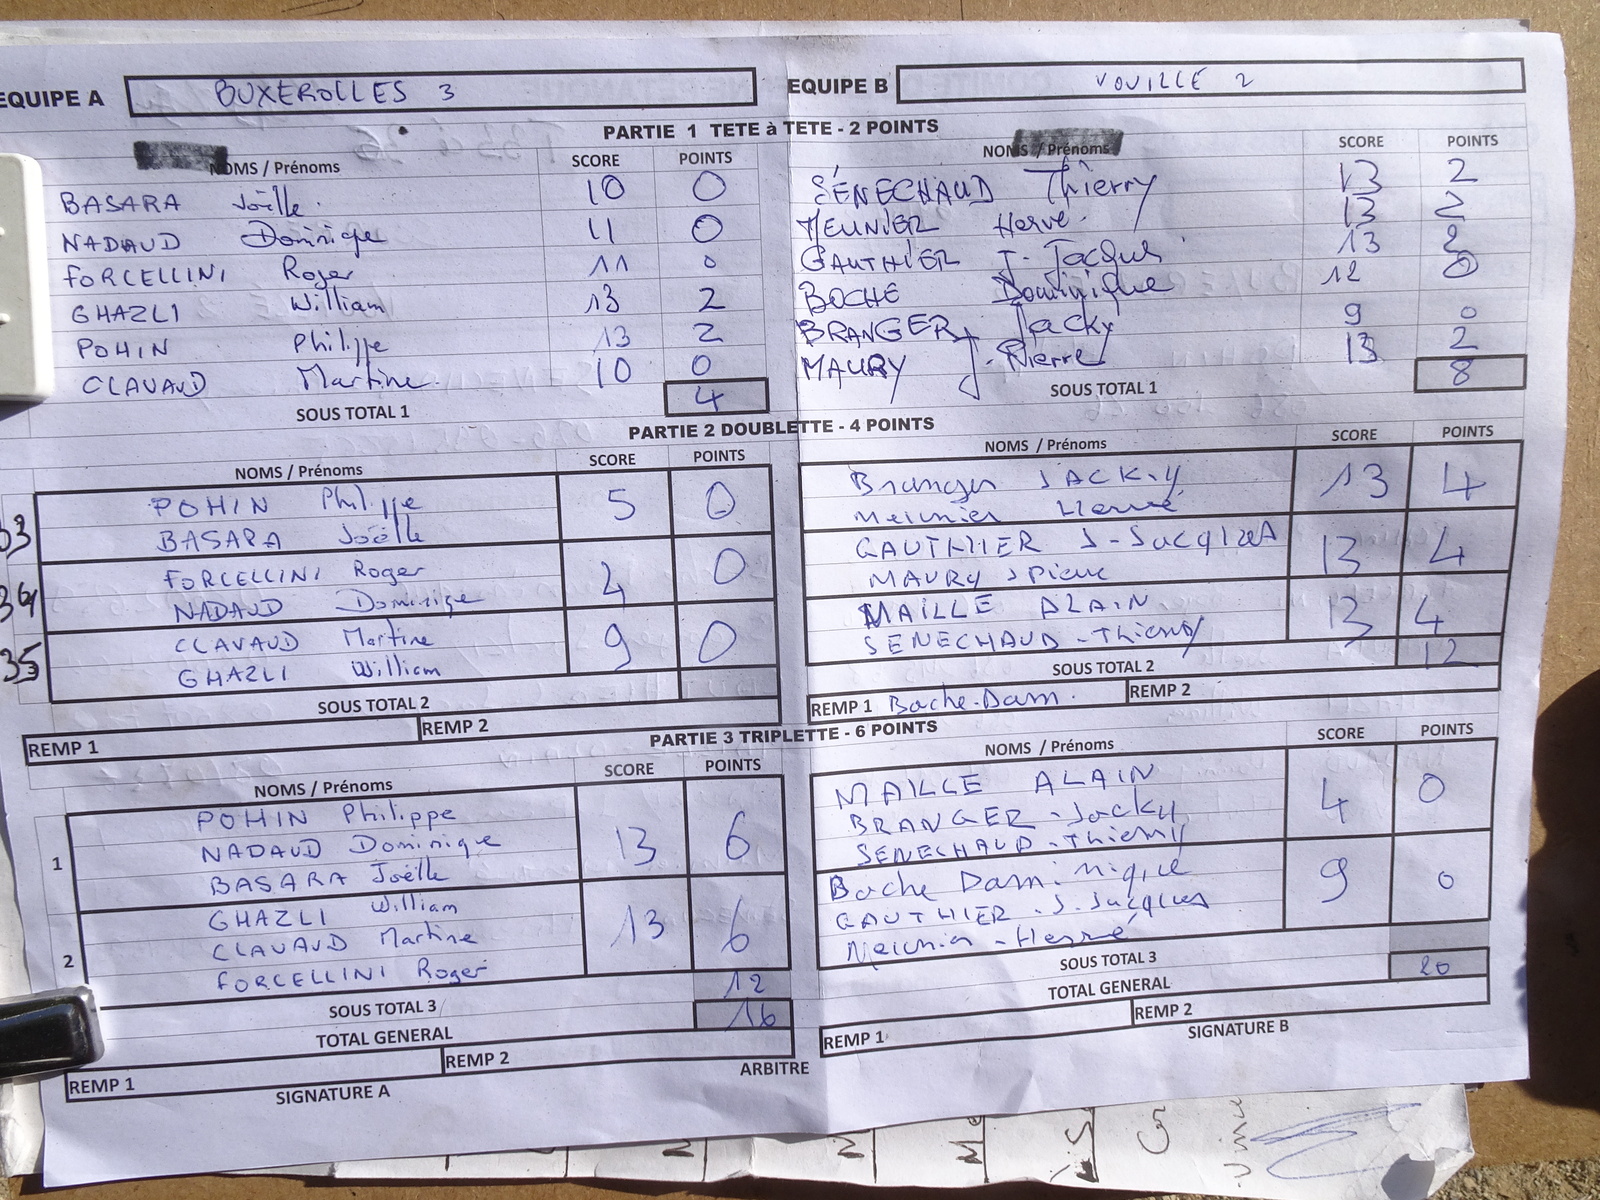 EQUIPE A BUXEROLLES 3 EQUIPE B VOUILLE 2
PARTIE 1 TETE à TETE - 2 POINTS
NOMS / Prénoms SCORE POINTS NOMS / Prénoms SCORE POINTS
BASARA Joëlle 10 0 SÉNECHAUD Thierry 13 2
NADAUD Dominique 11 0 MEUNIER Hervé 13 2
FORCELLINI Roger 11 0 GAUTHIER J. Jacques 13 2
GHAZLI William 13 2 BOCHE Dominique 12 0
POHIN Philippe 13 2 BRANGER Jacky 9 0
CLAVAUD Martine 10 0 MAURY J. Pierre 13 2
SOUS TOTAL 1 4 SOUS TOTAL 1 8
PARTIE 2 DOUBLETTE - 4 POINTS
NOMS / Prénoms SCORE POINTS NOMS / Prénoms SCORE POINTS
POHIN Philippe 5 0 Branger JACKY 13 4
BASARA Joëlle Meunier Hervé
FORCELLINI Roger 4 0 GAUTHIER J-Jacques 13 4
NADAUD Dominique MAURY J Pierre
35 CLAVAUD Martine 9 0 MAILLE ALAIN 13 4
GHAZLI William SENECHAUD - Thierry
SOUS TOTAL 2 SOUS TOTAL 2 12
REMP 1 REMP 2 REMP 1 Boche-Dom. REMP 2
PARTIE 3 TRIPLETTE - 6 POINTS
NOMS / Prénoms SCORE POINTS NOMS / Prénoms SCORE POINTS
1 POHIN Philippe 13 6 MAILLE ALAIN 4 0
NADAUD Dominique BRANGER - Jacky
BASARA Joëlle SENECHAUD - Thierry
2 GHAZLI William 13 6 Boche Dominique 9 0
CLAVAUD Martine GAUTHIER - J. Jacques
FORCELLINI Roger Meunier - Hervé
SOUS TOTAL 3 12 SOUS TOTAL 3
TOTAL GENERAL 16 TOTAL GENERAL 20
REMP 1 REMP 2 REMP 1 REMP 2
SIGNATURE A ARBITRE SIGNATURE B